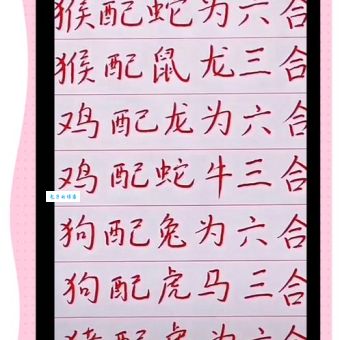 猴配蛇为六合
猴配鼠龙三合
鸡配龙为六合
鸡配蛇牛三合
狗配兔为六合
狗配虎马三合
猪配虎为六合